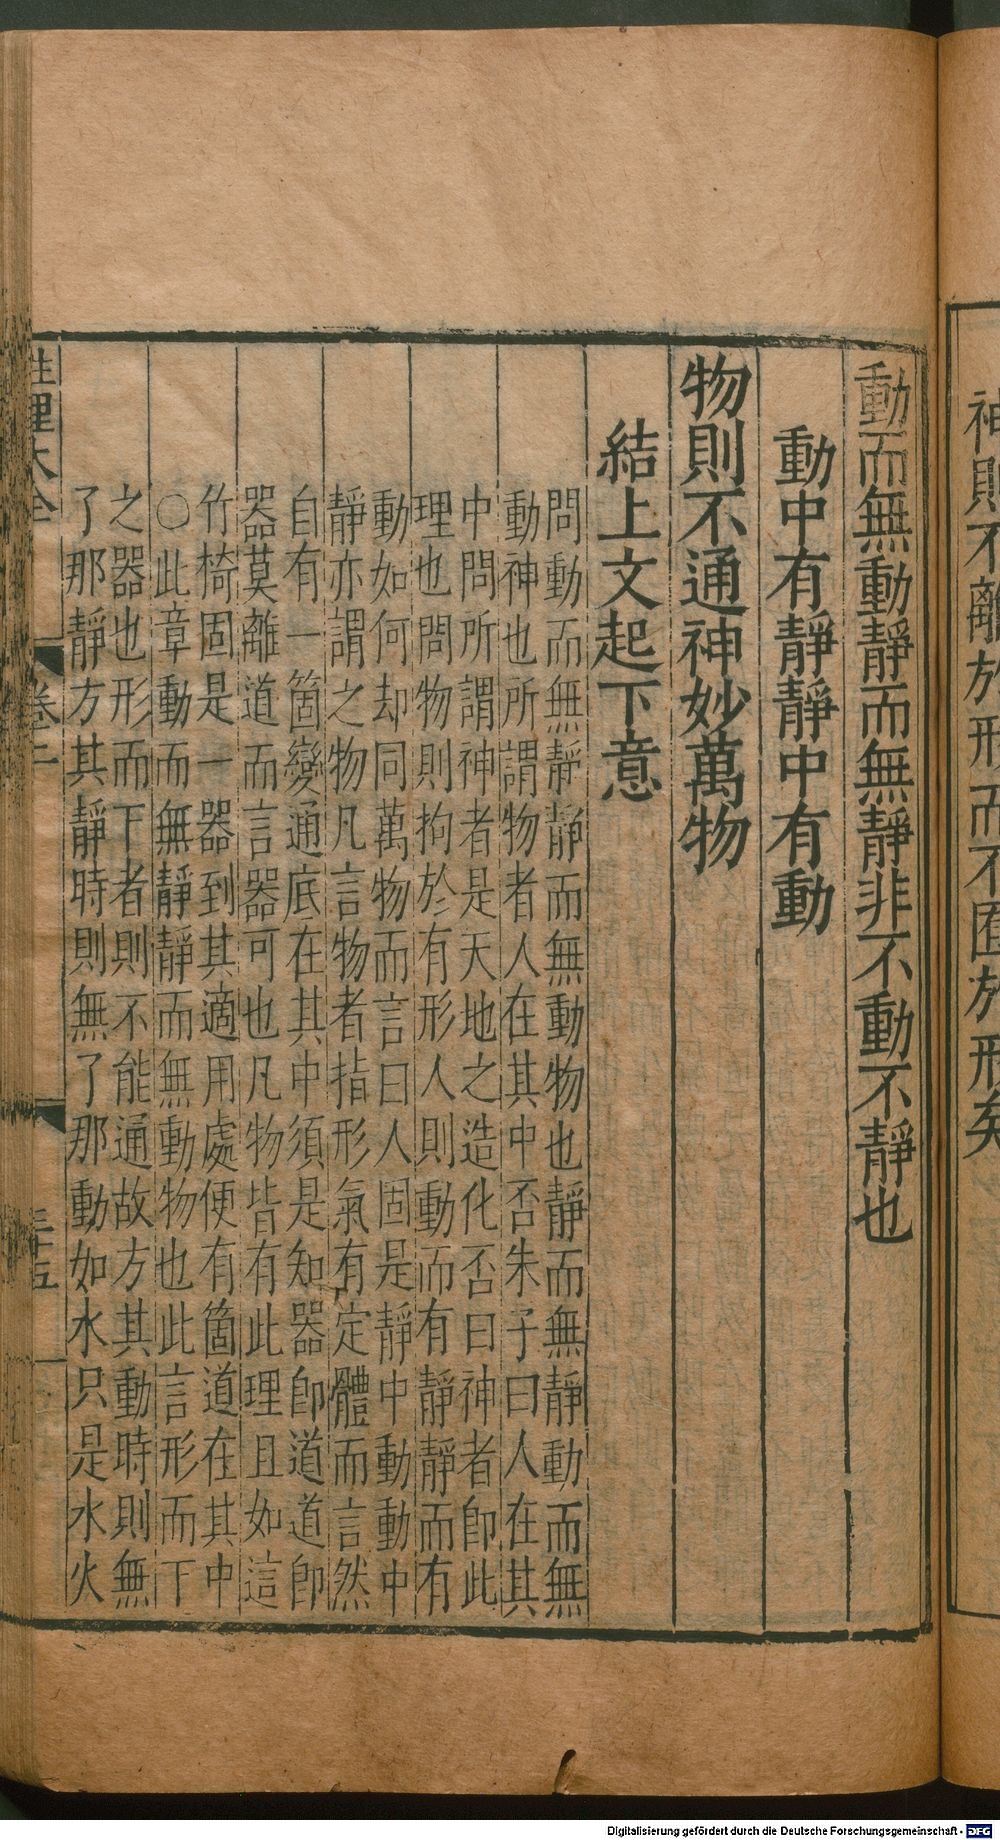 神則不離於形而不囿於形矣
動而無動靜而無靜非不動不靜也
動中有靜靜中有動
物則不通神妙萬物
結上文起下意
問動而無靜靜而無動物也靜而無靜動而無
動神也所謂物者人在其中否朱子曰人在其
中問所謂神者是天地之造化否曰神者卽此
理也問物則拘於有形人則動而有靜靜而有
動如何却同萬物而言曰人固是靜中動動中
靜亦謂之物凡言物者指形氣有定體而言然
自有一箇變通底在其中須是知器卽道道卽
器莫離道而言器可也凡物皆有此理且如這
竹椅固是一器到其適用處便有箇道在其中
○此章動而無靜靜而無動物也此言形而下
之器也形而下者則不能通故方其動時則無
了那靜方其靜時則無了那動如水只是水火
性理大全
卷二
三十五
Digitalisierung gefördert durch die Deutsche Forschungsgemeinschaft - DFG